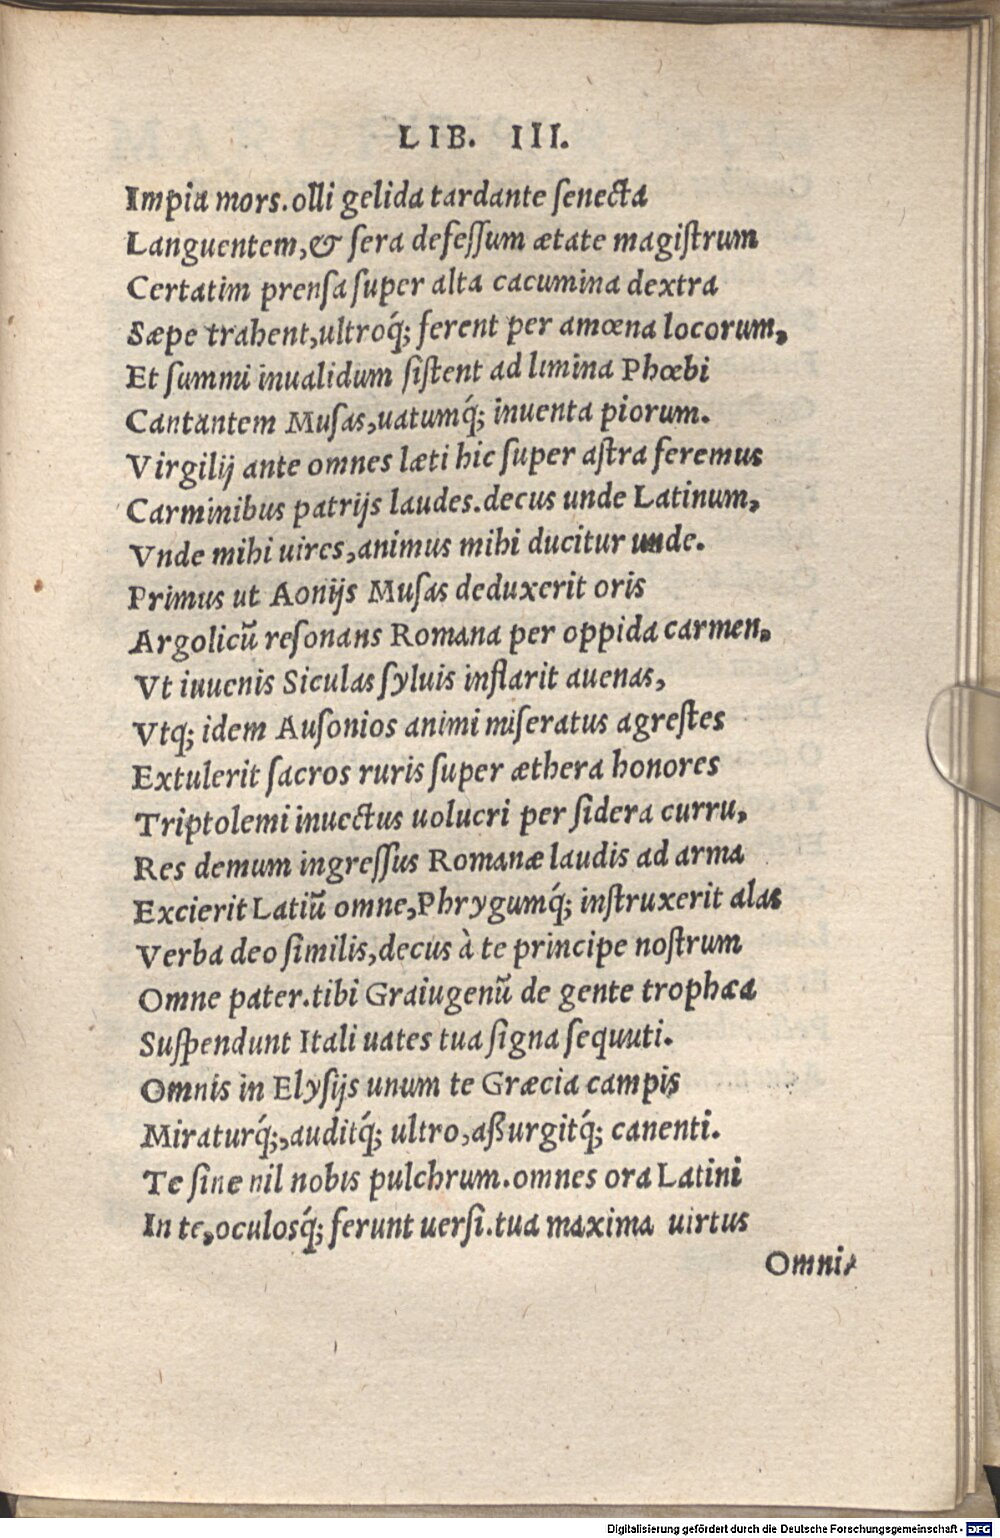 LIB. III.
Impia mors. olli gelida tardante senecta
Languentem, & sera defessum ætate magistrum
Certatim prensa super alta cacumina dextra
Sæpe trahent, ultroq́; ferent per amœna locorum,
Et summi inualidum sistent ad limina Phœbi
Cantantem Musas, uatumq́; inuenta piorum.
Virgilij ante omnes læti hic super astra feremus
Carminibus patrijs laudes. decus unde Latinum,
Vnde mihi uires, animus mihi ducitur unde.
Primus ut Aonijs Musas deduxerit oris
Argolicũ resonans Romana per oppida carmen,
Vt iuuenis Siculas syluis inflarit auenas,
Vtq; idem Ausonios animi miseratus agrestes
Extulerit sacros ruris super æthera honores
Triptolemi inuectus uolucri per sidera curru,
Res demum ingressus Romanæ laudis ad arma
Excierit Latiũ omne, Phrygumq́; instruxerit alas
Verba deo similis, decus à te principe nostrum
Omne pater. tibi Graiugenũ de gente trophæa
Suspendunt Itali uates tua signa sequuti.
Omnis in Elysijs unum te Græcia campis
Miraturq́;, auditq́; ultro, aßurgitq́; canenti.
Te sine nil nobis pulchrum. omnes ora Latini
In te, oculosq́; ferunt uersi. tua maxima uirtus
Omni
Digitalisierung gefördert durch die Deutsche Forschungsgemeinschaft - DFG